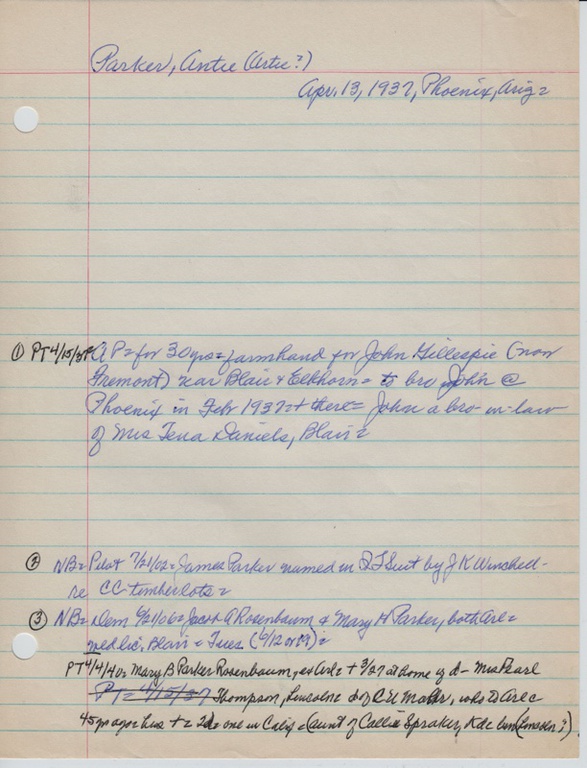 Parker, Antie (Artie?)
Apr. 13, 1937, Phoenix, Ariz=
① PT 4/15/37= A P= for 30 yrs= farmhand for John Gillespie (now
Fremont) near Blair & Elkhorn= to bro John @
Phoenix in Feb 1937= + there= John a bro-in-law
of Mrs Tena Daniels, Blair=
② NB= Pilot 7/21/02= James Parker named in QTSuit by J K Winchell-
re CC timberlots=
③ NB= Dem 6/21/06= Jacob A Rosenbaum & Mary H Parker, both Arl=
wed lic, Blair= Tues (6/12 or 19)=
PT 4/4/40= Mary B Parker Rosenbaum, ex Arl= + 3/27 at home of d- Mrs Pearl
PT= 4/15/37 Thompson, Lincoln= d of C H, who D Arl c
45 yrs ago= hus + = 2 d= one in Calif= (aunt of Callie Spraker, Kdc (Lincoln?)